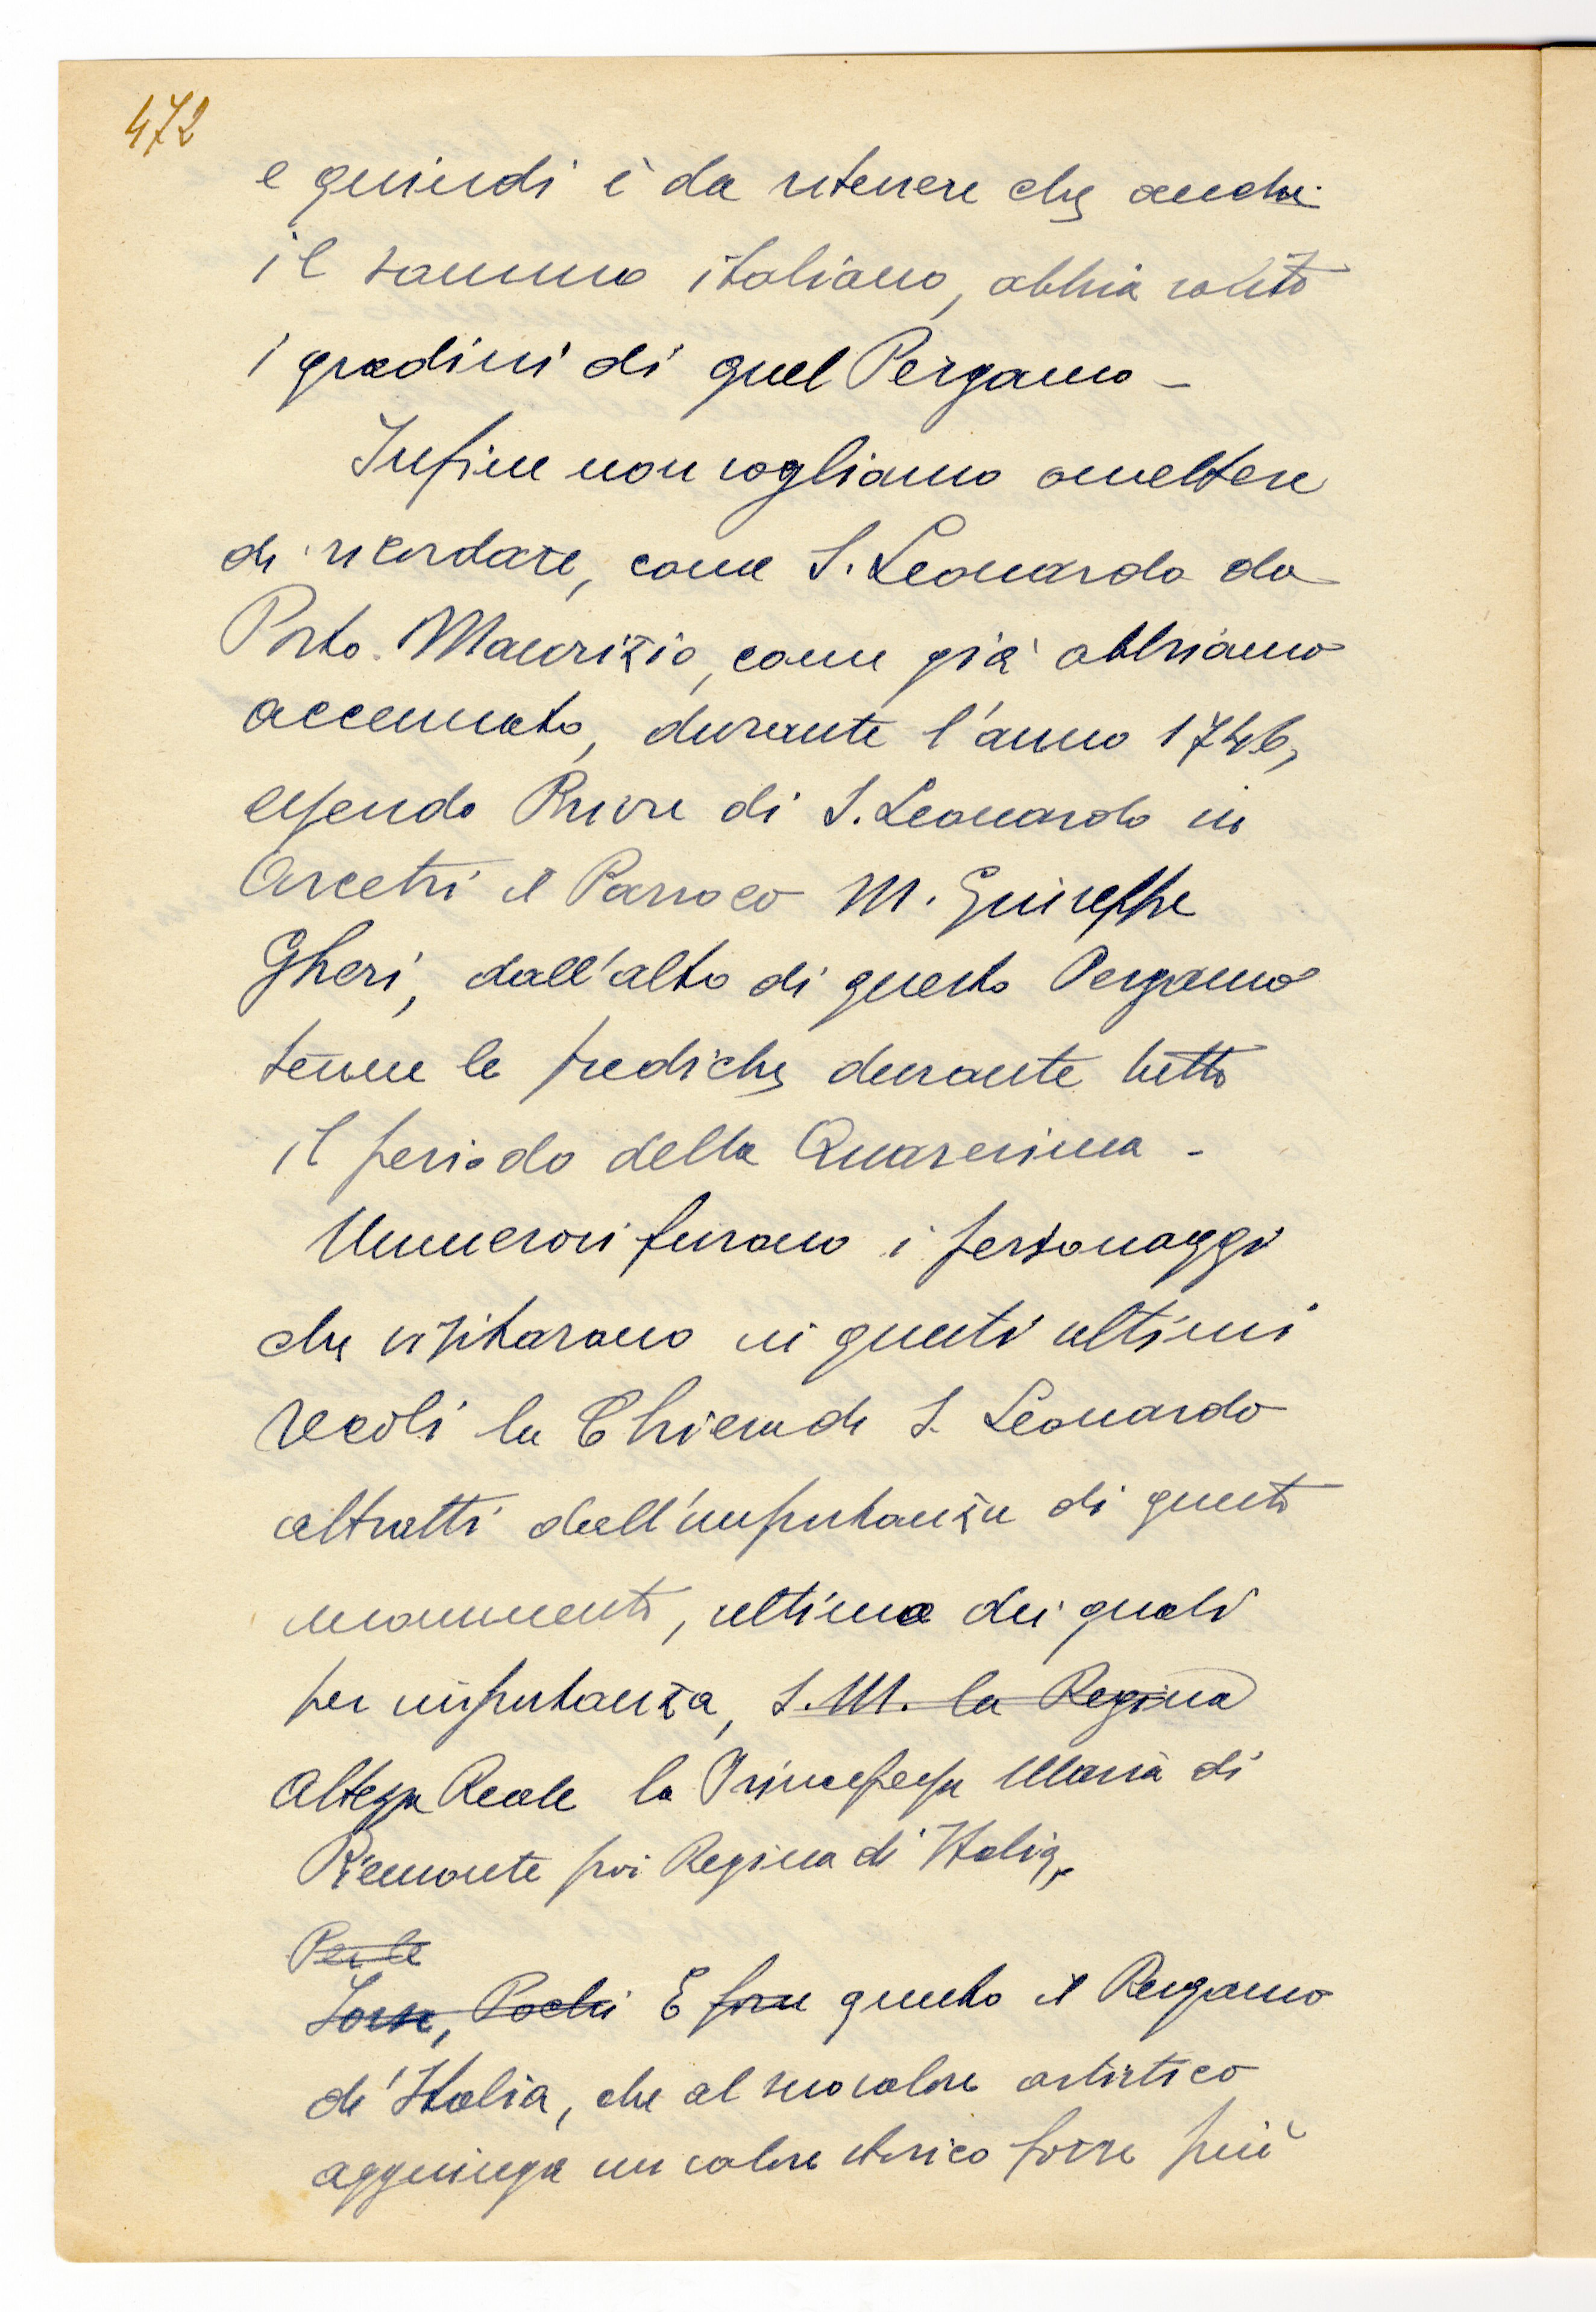 472
e quindi è da ritenere che anche
il sommo italiano, abbia salito
i gradini di quel Pergamo -
Infine non vogliamo omettere
di ricordare, come S. Leonardo da
Porto Maurizio, come già abbiamo
accennato, durante l'anno 1746,
essendo Priore di S. Leonardo in
Arcetri il Parroco M. Giuseppe
Gheri, dall'alto di questo Pergamo
tenne le prediche durante tutto
il periodo della Quaresima -
Numerosi furono i personaggi
che visitarono in questi ultimi
secoli la Chiesa di S. Leonardo
attratti dall'importanza di questo
monumento, ultima dei quali
per importanza, S. M. la Regina
Altezza Reale la Principessa Maria di
Piemonte poi Regina di Italia,
Per le
Forse, Pochi E forse questo il Pergamo
di Italia, che al suo valore artistico
aggiunga un valore storico forse più